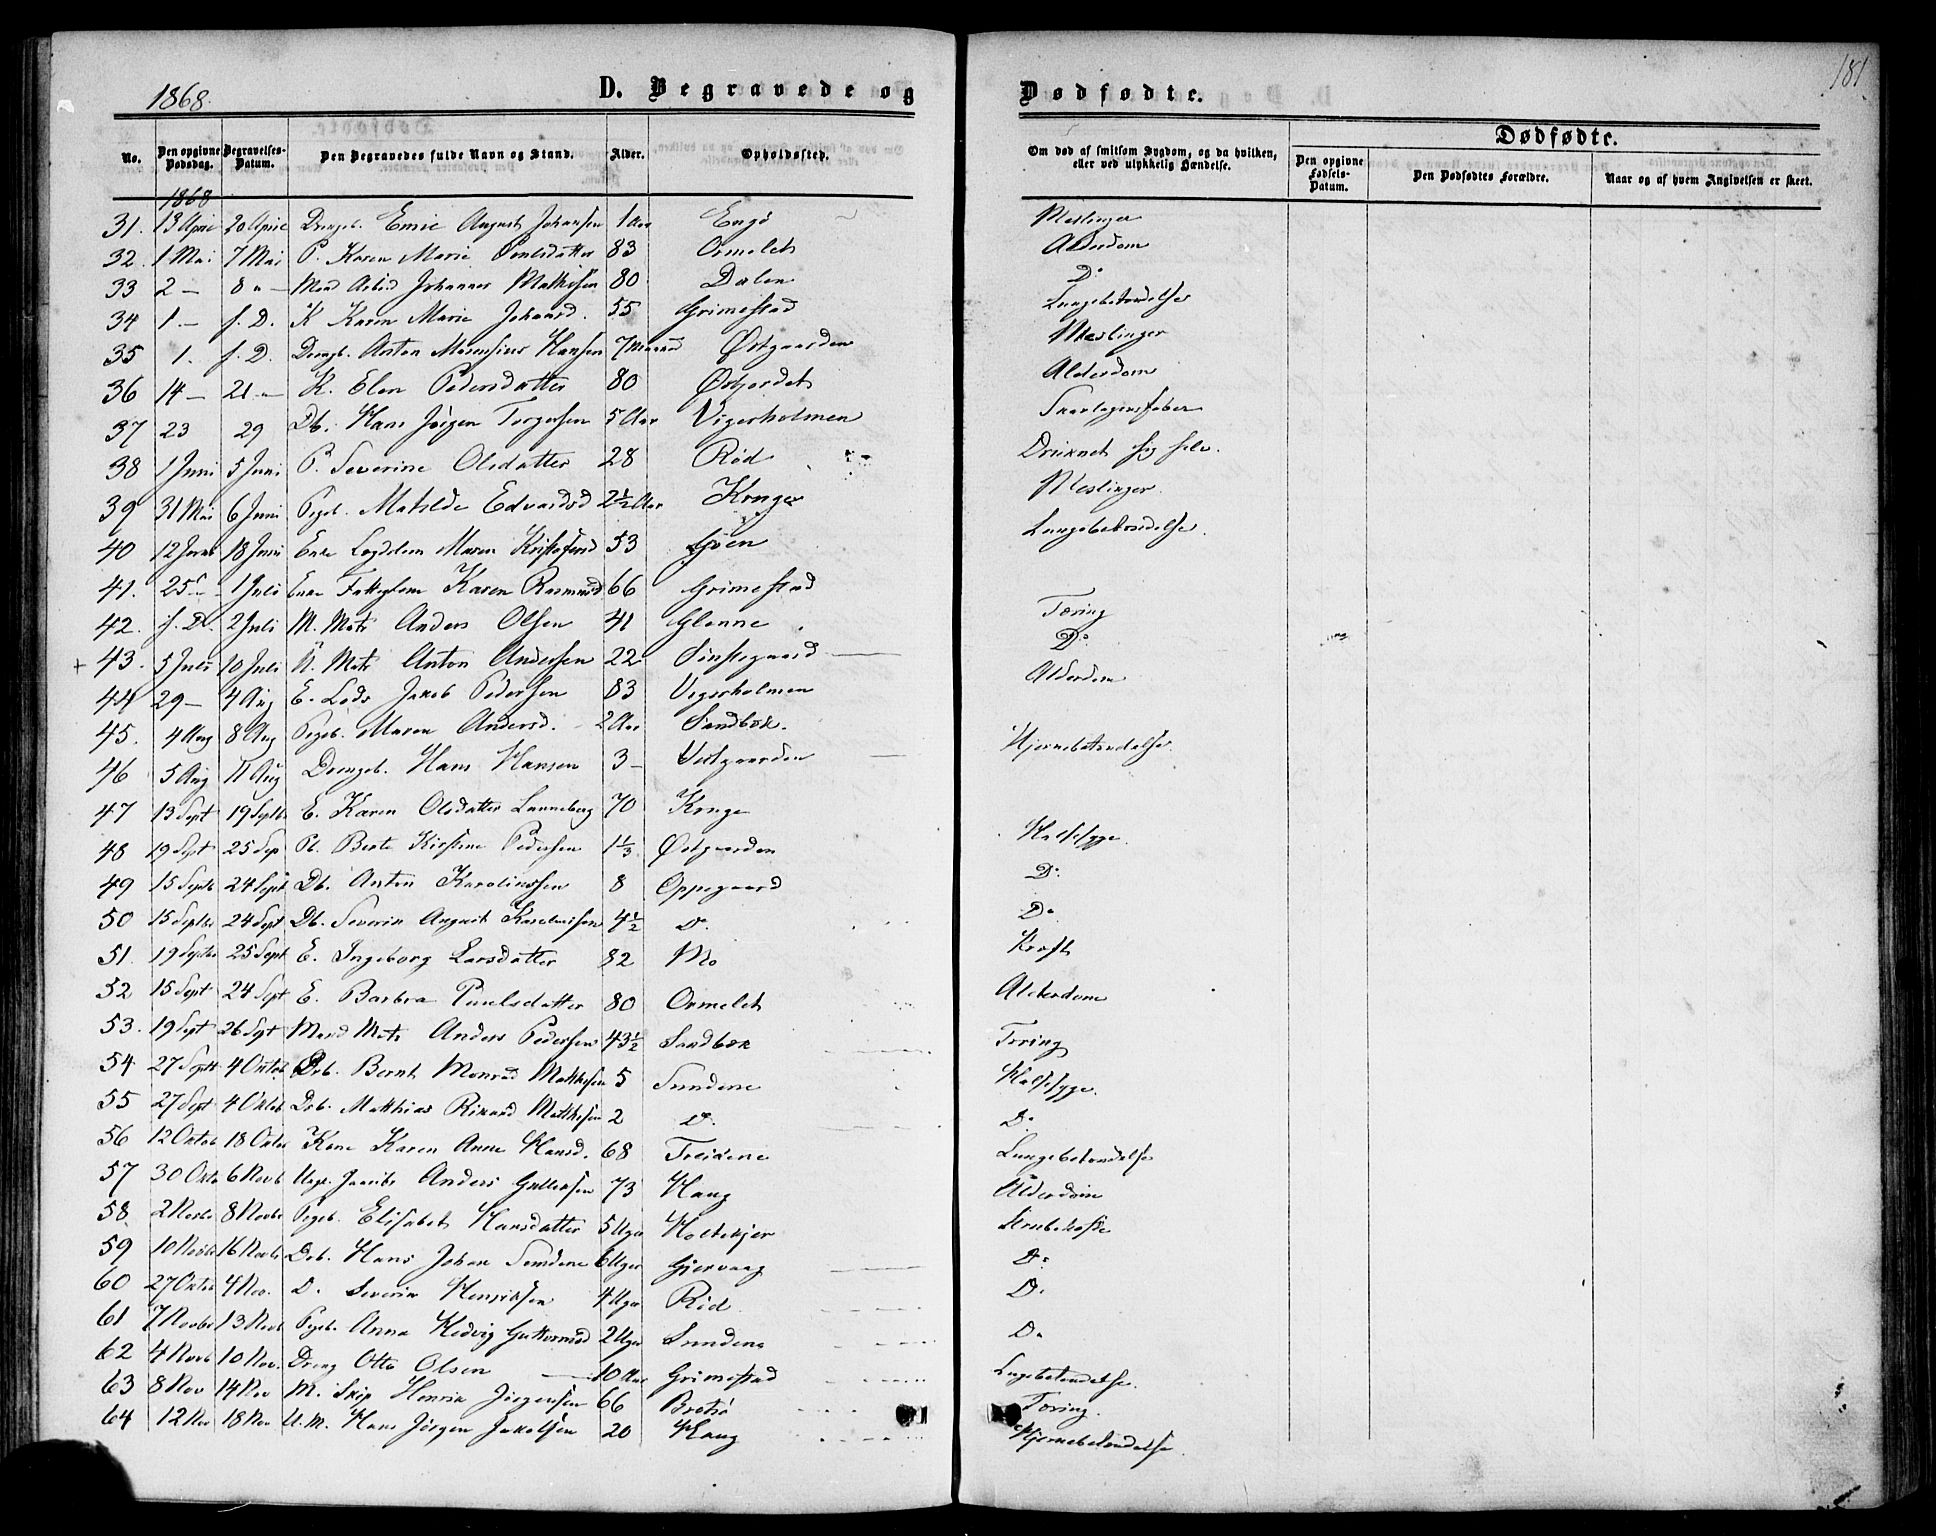 1868.
D. Begravede og
Dødfødte.
181
Dødfødte.
No.
Den opgivne Dødsdag.
Begravelses-Datum.
Den Begravedes fulde Navn og Stand.
Alder.
Opholdssted.
Om død af smitsom Sygdom, og da hvilken, eller ved ulykkelig Hændelse.
Den opgivne Fødsels-Datum.
Den Dødfødtes Forældre.
Naar og af hvem Angivelsen er skeet.
1868
31. 13 April 20 April Drengb. Emil August Johansen 1 Aar Engø Meslinger
32. 1 Mai 7 Mai P. Karen Marie Poulsdatter 83 Ormelet Alderdom
33 2 — 8 " — Mand Arbid Johannes Mathisen 80 Dalen Do
34 1. — f. D. K Karen Marie Johansd. 55 Grimestad Lungebetændelse
35 1. f. D. Drengb. Anton Marensius Hansen 7 Maaned Østgaarden Meslinger
36 14 — 21 — K. Elen Pedersdatter 80 Østjordet Alderdom
37 23 29 Db. Hans Jörgen Torgersen 5 Aar Vigerholmen Skarlagensfeber
38 1 Juni 5 Juni P. Severine Olsdatter 28 Rød Druknet sig selv.
39 31 Mai 6 Juni Pigeb. Matilde Edvardsd 2½ Aar Kruge Meslinger.
40 12 Juni 18 Juni Enke Maren Kristofersd 53 Sjøen Lungebetændelse.
41. 25 — 1 Juli Enke Fattiglem Karen Rasmusd 66 Grimestad
42. f. D. 2 Juli M. Mats Anders Olsen 41 Glenne Tæring
+ 43. 5 Juli 10 Juli U. Mats Anton Andersen 22 Do
44 29 — 4 Aug E. Lods Jakob Pedersen 83 Vigerholmen Alderdom
45. 4 Aug 8 Aug Pigeb. Maren Andersd. 2 Aar Sandbæk.
46 5 Aug 11 Aug Drengeb. Hans Hansen 3 — Vestgaarden Hjernebetændelse.
47 13 Sept 19 Septb E. Karen Olsdatter Lanneberg 70 Kruge
48 19 Sept 25 Sep Pb. Berte Kirstine Pedersen 1⅓ Østgaarden Halssyge.
49 15 Septb 24 Sept Db. Anton Karelinssen 8 Oppegaard Do.
50 15 Septbr 24 Sept Db. Severin August Karelinssen 4½ Do. Do
51. 19 Septbr 25 Sept E. Ingeborg Larsdatter 82 Mo Kræft
52 15 Sept 24 Sept E. Barbra Paulsdatter 80 Ormelet Alderdom
53. 19 Sept 26 Sept Mand Mats Anders Pedersen 43½ Sandbæk Tæring
54 27 Sept 4 Oktob Drb. Bernt Monrad Mathisen 5 Sundene Halssyge.
55 27 Sept 4 Oktob Drb. Matthias Rikard Mathisen 2 Do. Do.
56 12 Oktob 18 Oktbr Kone Karen Anne Hansd. 68 Treidene Lungebetændelse
57 30 Oktb 6 Novb Anders Gulliksen 73 Haug Alderdom
58 2 Novbr 8 Novbr Pigeb. Elisabet Hansdatter 5 Uger Holtekjer Strubehoste
59 10 Novbr 16 Novb Drb. Hans Johan Semdene 6 Uger Gjervaag Do
60 27 Oktbr 4 Nov. D. Severin Henriksen 4 Uger Rød Do.
61 7 Novbr 13 Novb Pigeb. Anna Hedvig Guttormsd 2 Uger Sundene Do
62 4 Novb 10 Nov. Dreng Otto Olsen 10 Aar Grimestad Lugebetendelse.
63 8 Nov 14 Nov M. Skip Henrik Jörgensen 66 Brøtsø Tæring.
64 12 Nov 18 Nov U.M. Hans Jörgen Jakobsen 20 Haug Hjernebetendelse.